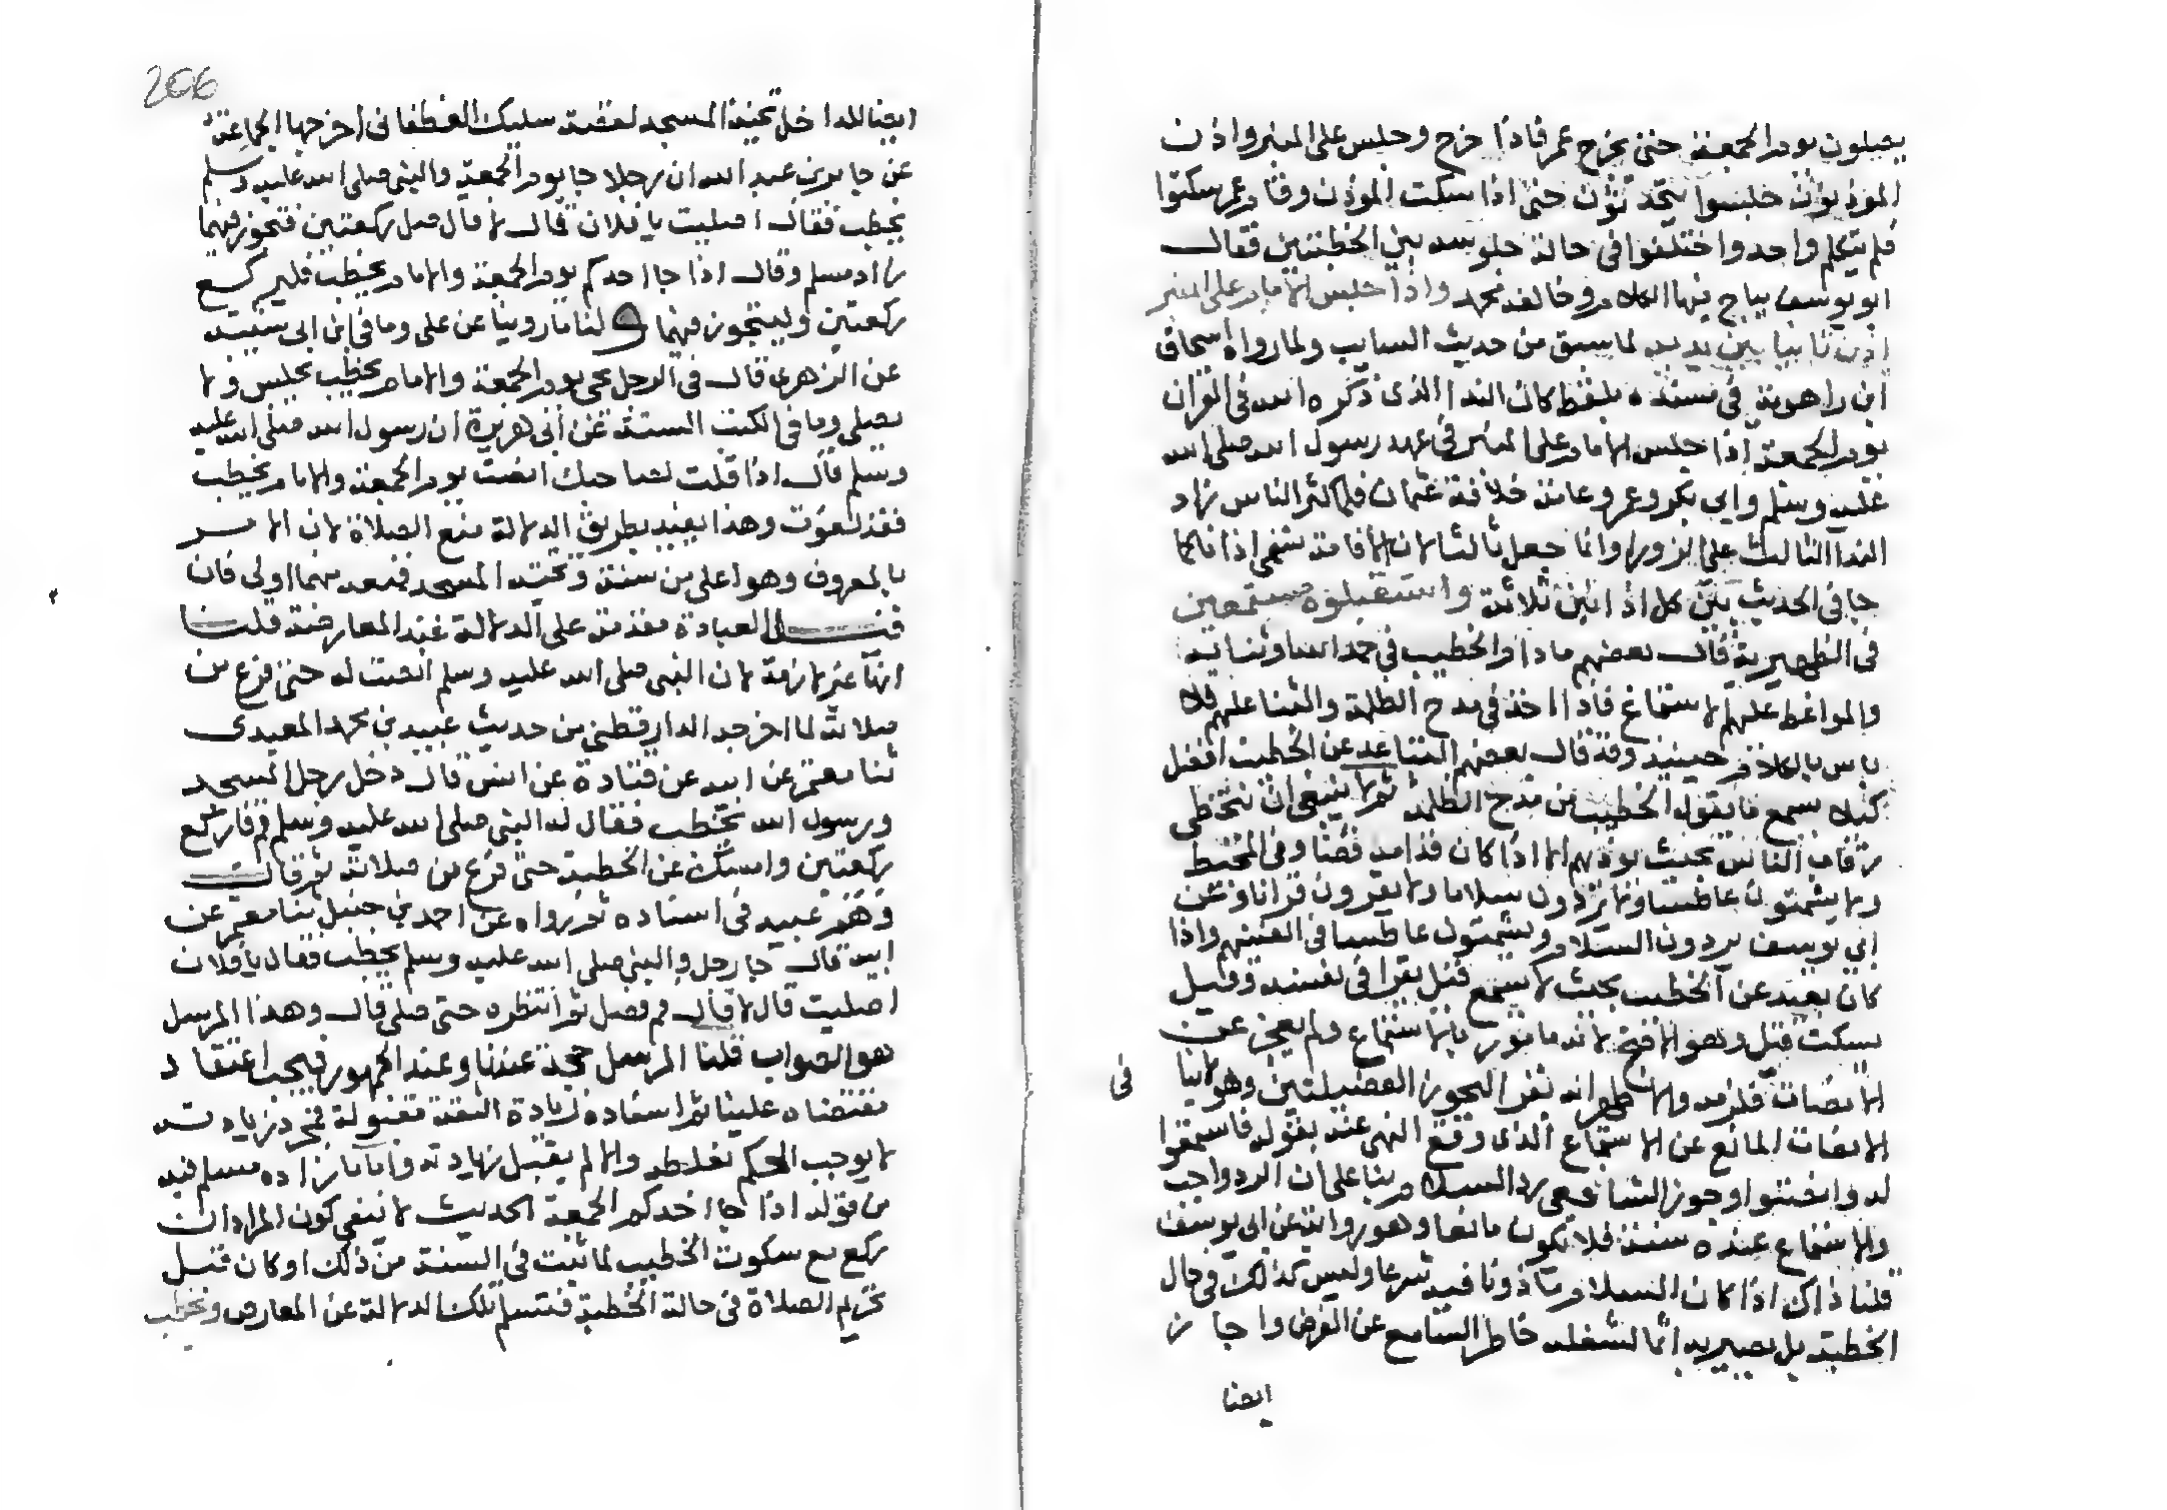 يصلون يوم الجمعة حتى يخرج عمر فاذا خرج وجلس على المنبر واذن
الموذنون جلسوا يتحدثون حتى اذا سكت الموذن وقام عمر سكتوا
فلم يتكلم واحد واختلفوا في حالة جلوسه بين الخطبتين فقال
ابو يوسف يباح فيها الكلام وخالفه محمد واذا جلس الامام على المنبر
اذن ثانيا بين يديه لما سبق من حديث السايب ولما رواه اسحاق
ابن راهوية في مسنده بلفظ كان الندا الذى ذكره الله في القران
يوم الجمعة اذا جلس الامام على المنبر في عهد رسول الله صلى الله
عليه وسلم وابي بكر وعمر وعامة خلافة عثمان فلما كثر الناس زاد
الندا الثالث على الزورا وانما جعل ثالثا لان الاقامة تسمى اذانا كما
جا في الحديث بين كل اذانين ثلاثة واستقبلوه مستمعين
في الظهيرية قال بعضهم ما دام الخطيب في حمد الله وثنايه
والمواعظ عليهم الاستماع فاذا اخذ في مدح الظلمة والثنا عليهم فلا
باس بالكلام حينيذ وقد قال بعضهم التباعد عن الخطيب افضل
كيلا يسمع ما يقول الخطيب من مدح الظلمة ثم لا ينبغي ان يتخطى
رقاب الناس بحيث يوذيهم الا اذا كان قدامه فضا وفي المحيط
ولا يشمتون عاطسا ولا يردون سلاما ولا يقرون قرانا وعن
ابي يوسف يردون السلام ويشمتون عاطسا في انفسهم واذا
كان بعيد عن الخطيب بحيث لا يسمع قيل يقرا في نفسه وقيل
يسكت قيل وهو الاصح لانه مامور بالاستماع ولم يعجز عن
الانصات فلزمه والاظهر انه يقرا ليحوز الفضيلتين وهو لا ينا
في
الانصات المانع عن الاستماع الذى وقع النهى عنه بقوله فاستمعوا
له وانصتوا وجوز الشافعى رد السلام بنا على ان الرد واجب
والاستماع عنده سنة فلا يكون مانعا وهو رواية عن ابى يوسف
قلنا ذاك اذا كان السلام ماذونا فيه شرعا وليس كذلك في حال
الخطبة بل يصير به اثما لشغله خاطر السامع عن الفرض واجاز
ايضا
206
ايضا للداخل تحية المسجد لقصة سليك الغطفانى اخرجها الجماعة
عن جابر بن عبد الله ان رجلا جا يوم الجمعة والنبى صلى الله عليه وسلم
يخطب فقال اصليت يا فلان قال لا قال صل ركعتين فتجوز فيهما
زاد مسلم وقال اذا جا احدكم يوم الجمعة والامام يخطب فليركع
ركعتين وليتجوز فيهما ولنا ما روينا عن على وما في ابن ابى شيبة
عن الزهرى قال في الرجل يجي يوم الجمعة والامام يخطب يجلس ولا
يصلى وما في الكتب الستة عن أبى هريرة ان رسول الله صلى الله عليه
وسلم قال اذا قلت لصاحبك انصت يوم الجمعة والامام يخطب
فقد لغوت وهذا يفيد بطريق الدلالة منع الصلاة لان الامر
بالمعروف وهو اعلى من سنة وتحية المسجد فمنعه منهما اولى فان
قيل العبادة مقدمة على الدلالة عند المعارضة قلنا
انها غير لازمة لان النبى صلى الله عليه وسلم انصت له حتى فرغ من
صلاته لما اخرجه الدارقطني من حديث عبيد بن محمد العبدى
ثنا معتمر عن ابيه عن قتادة عن انس قال دخل رجل المسجد
ورسول الله يخطب فقال له النبى صلى الله عليه وسلم قم فاركع
ركعتين وامسك عن الخطبة حتى فرغ من صلاته ثم قال
وهم عبيد فى اسناده ثم رواه عن احمد بن حنبل ثنا معتمر عن
ابيه قال جا رجل والنبى صلى الله عليه وسلم يخطب فقال يا فلان
اصليت قال لا قال قم فصل ثم انتظره حتى صلى قال وهذا المرسل
هو الصواب قلنا المرسل حجة عندنا وعند الجمهور فيجب اعتقاد
مقتضاه علينا ثم اسناده زيادة الثقة مقبولة فمجرد زيادته
لا يوجب الحكم بغلطه والا لم يقبل زيادته وما زاده مسلم فيه
من قوله اذا جا احدكم الجمعة الحديث لا ينفى كون المراد ان
يركع مع سكوت الخطيب لما ثبت في السنة من ذلك او كان قبل
تحريم الصلاة في حالة الخطبة فتسلم تلك الدلالة عن المعارض ويخطب